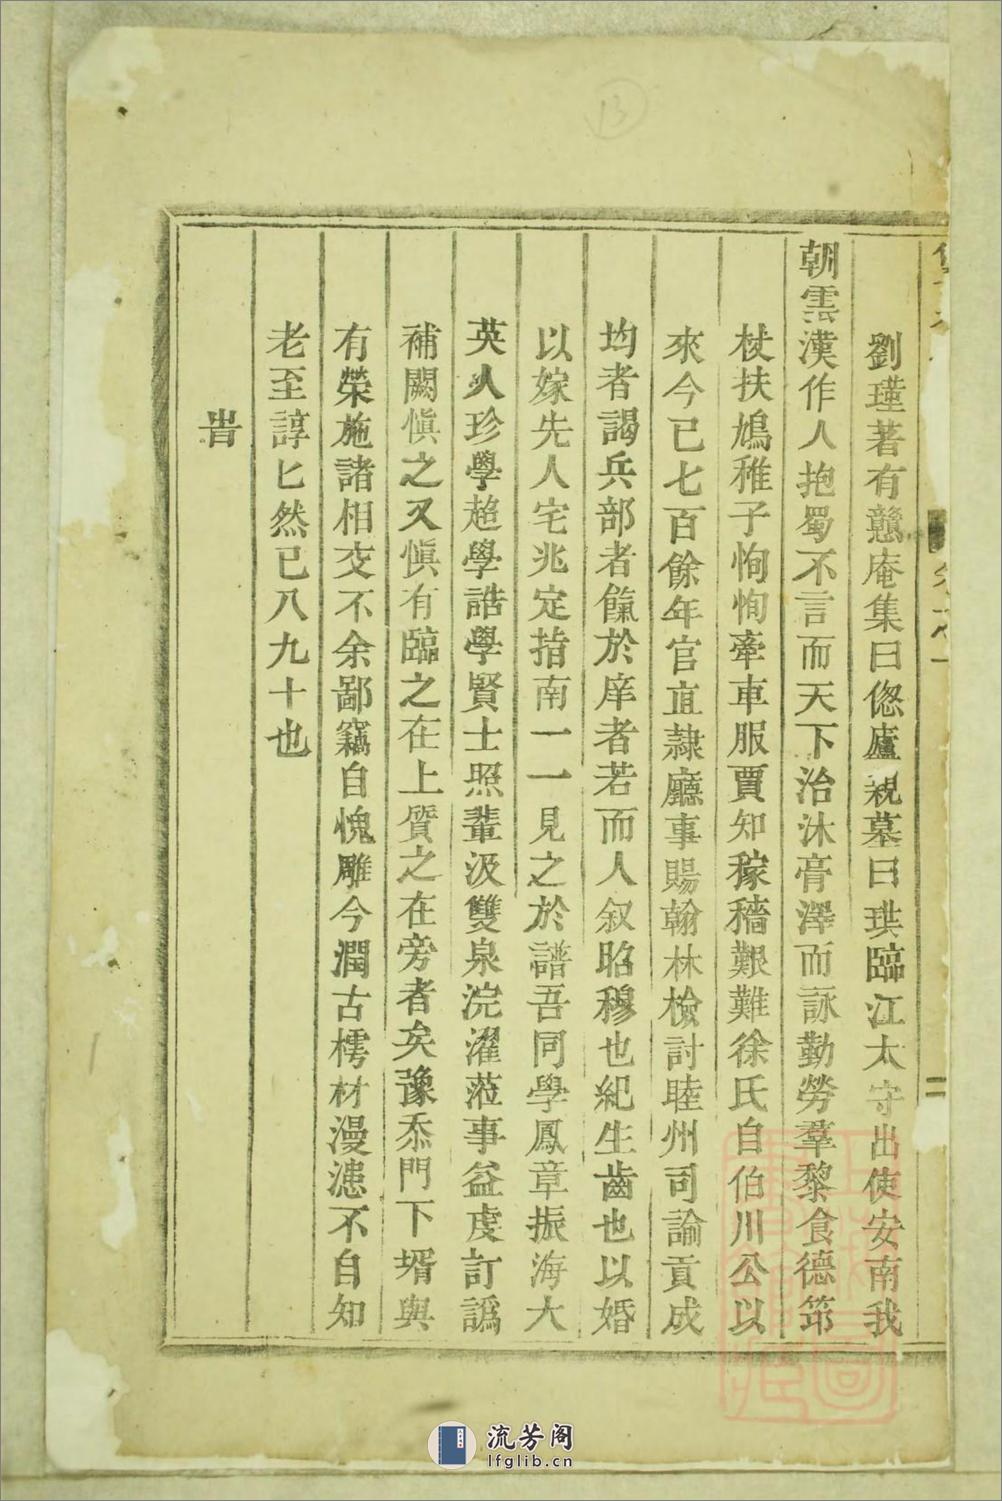 劉瑾著有戇庵集曰偬廬親墓曰珙臨江太守出使安南我
朝雲漢作人抱蜀不言而天下治沐膏澤而詠勤勞羣黎食德筇
杖扶鳩稚子恂恂牽車服賈知稼穡艱難徐氏自伯川公以
來今已七百餘年官直隷廳事賜翰林檢討睦州司諭貢成
均者謁兵部者餼於庠者若而人叙昭穆也紀生齒也以婚
以嫁先人宅兆定指南一一見之於譜吾同學鳳章振海大
英人珍學超學誥學賢士照輩汲雙泉浣濯蒞事益虔訂譌
補闕愼之又愼有臨之在上質之在旁者矣豫忝門下壻與
有榮施諸相交不余鄙竊自愧雕今潤古樗材漫漶不自知
老至諄匕然已八九十也
旹
卷之一
二
13
流芳阁
lfglib.cn